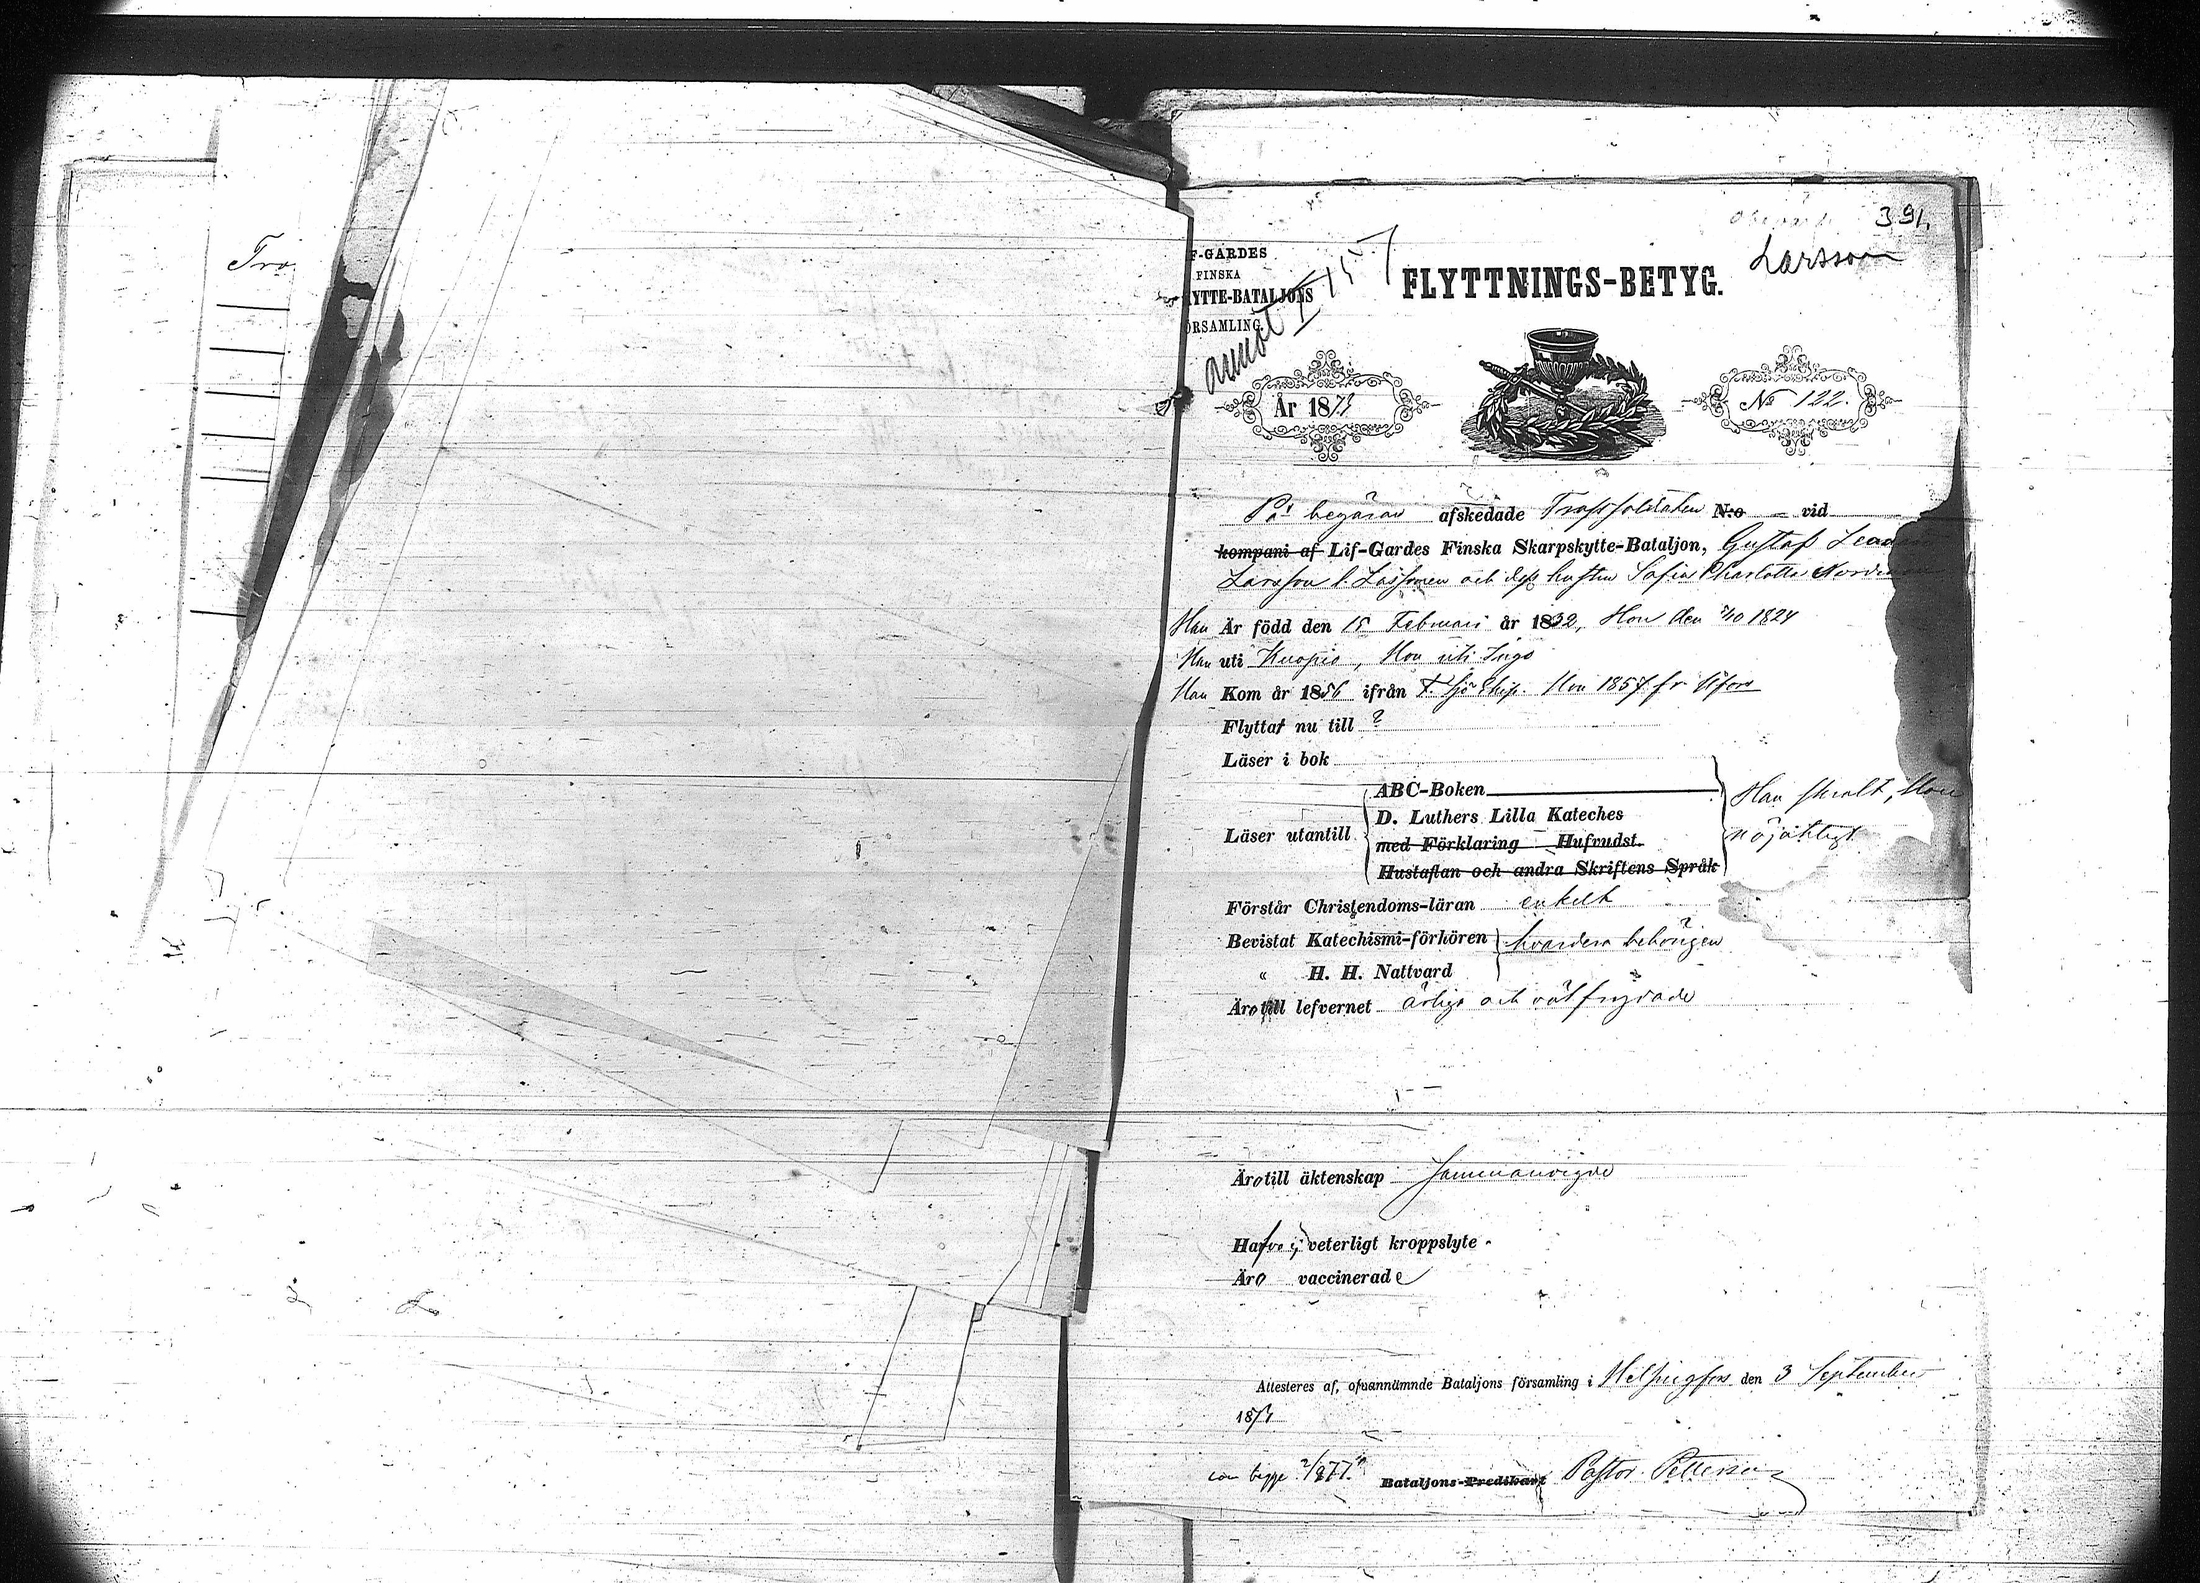 Tro
391
Larsson
F-GARDES
FINSKA
YTTE-BATALJONS
ÖRSAMLING.
FLYTTNINGS-BETYG.
År 1873
No 122.
På begäran afskedade Trosssoldaten N:o – vid
kompani af Lif-Gardes Finska Skarpskytte-Bataljon, Gustaf
Larsson l. Lassonen och dess hustru Sofia Charlotta
Han Är född den 15 Februari år 1832, Hon den 1824
Han uti Kuopio, Hon uti Ingo
Han Kom år 1856 ifrån Hon 1857 fr. Hfors
Flyttat nu till ?
Läser i bok
ABC-Boken
Läser utantill
D. Luthers Lilla Kateches
med Förklaring Hufvudst.
Hustaflan och andra Skriftens Språk
Han skralt, Hon
nöjaktigt
Förstår Christendoms-läran enkelt
Bevistat Katechismi-förhören hvardera behörigen
« H. H. Nattvard
Äro till lefvernet ärliga och välfrejdade
Äro till äktenskap sammanvigde
Hafva ej veterligt kroppslyte
Äro vaccinerade
Attesteres af, ofvannämnde Bataljons församling i Helsingfors den 3 September
187
Bataljons-Predikant Pastor